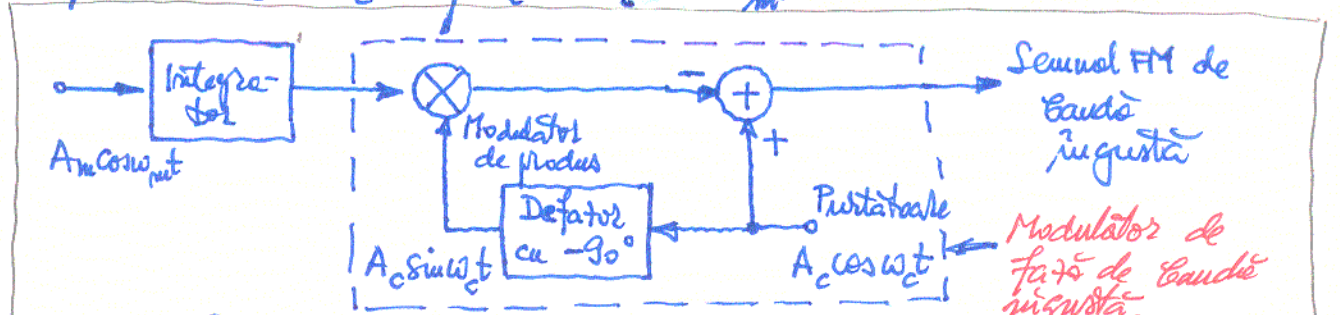 Integra-
tor
A_m cosω_m t
Modulator
de produs
Defazor
cu -90°
A_c sinω_c t
−
+
+
Purtătoare
A_c cosω_c t
Semnal FM de
bandă
îngustă
Modulator de
fază de bandă
îngustă